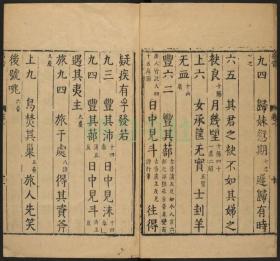 九四 歸妹愆期 遲歸有時
六五 其君之袂不如其婦之
袂良 月幾望
上六 女承筐无實士刲羊
无血
豐六二 豐其蔀
日中見斗 往得
疑疾有孚發若
九三 豐其沛 日中見沬
九四 豐其蔀 日中見斗
遇其夷主
旅九四 旅于處 得其資斧
上九 鳥焚其巢 旅人先笑
後號咷